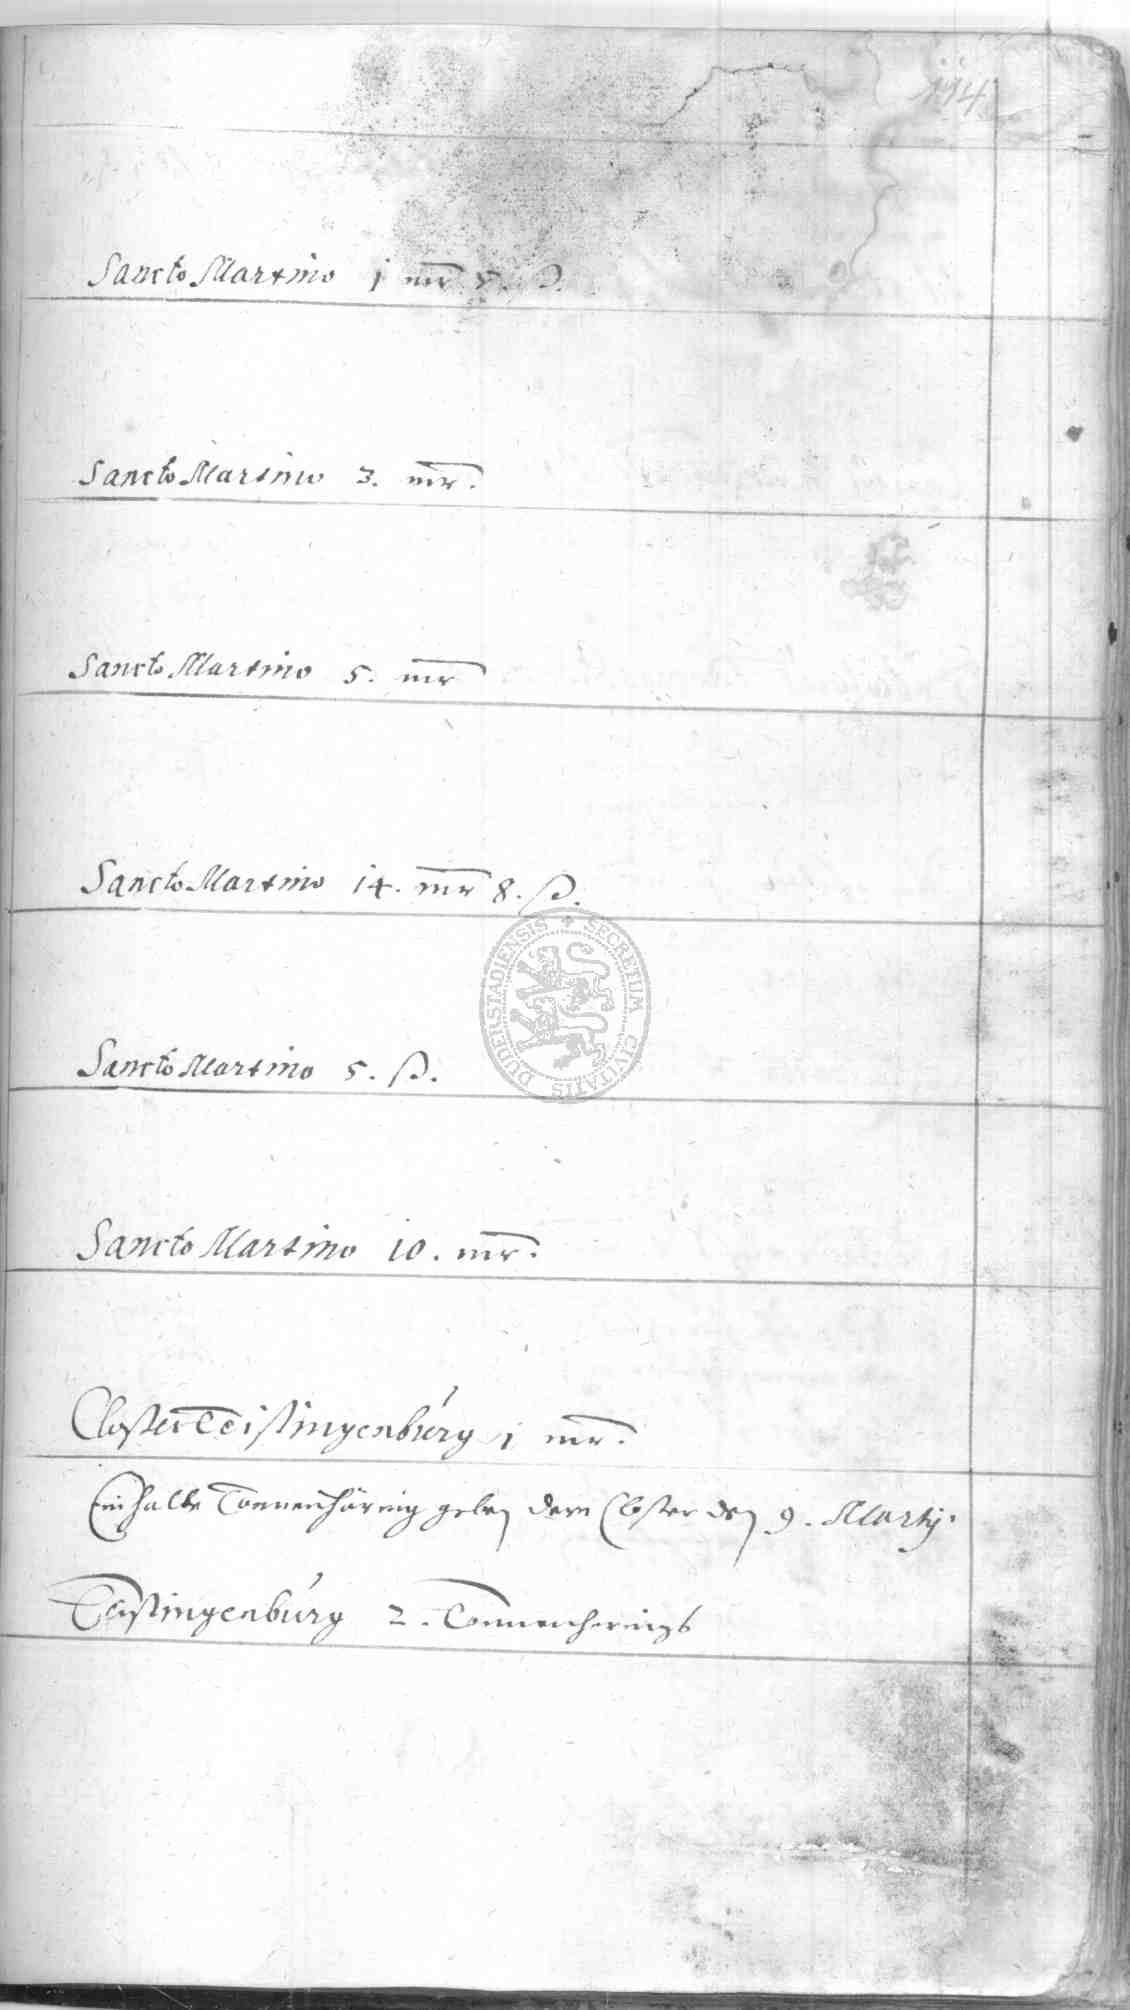 114
Sancto Martino 1 mr 5. ß.
Sancto Martino 3. mr.
Sancto Martino 5. mr
Sancto Martino 14. mr 8. ß.
SECRETUM CIVITATIS DUDERSTADIENSIS
Sancto Martino 5. ß.
Sancto Martino 10. mr.
Closter Teistingenburg 1 mr.
Ein halbe Tonnen häring geben dem Closter den 9. Martij.
Teistingenburg 2. Tonnen herings